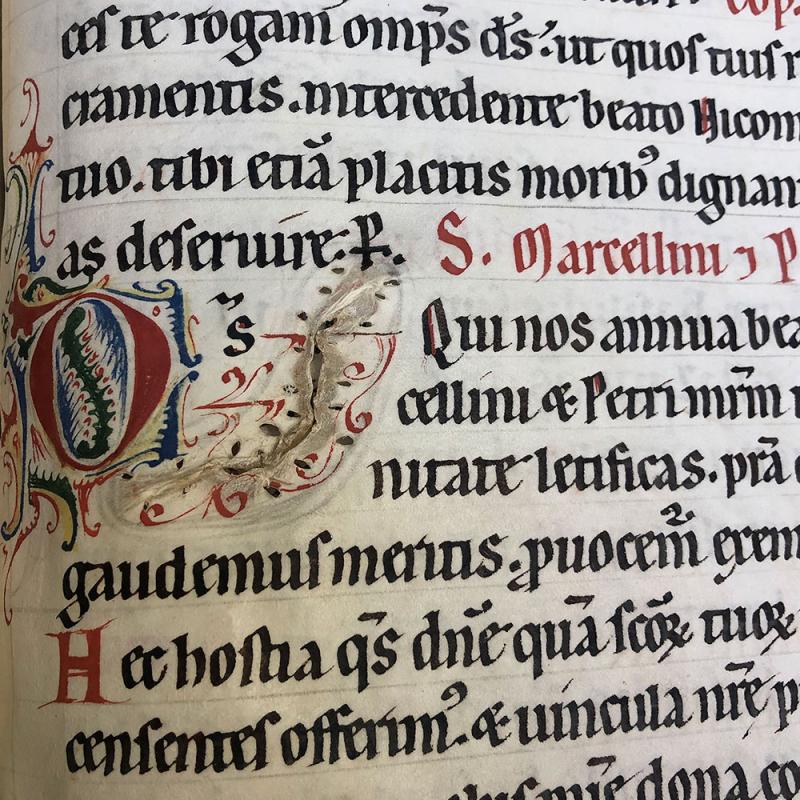 ces te rogam͛ omp̄s d̄s. ut quos tuis
cramentis. intercedente beato Nicom
tuo. tibi etiā placitis moribꝰ dignan
as deseruire. P̄. S. Marcellini ⁊ P
D s̄ Qui nos annua bea
cellini & Petri mr̄m
nitate letificas. prā
gaudemus meritis. ꝓuocem̄ exem
Hec hostia q̄s dn̄e quā scōꝝ tuoꝝ
censentes offerimꝰ. & uincula nr̄e p
dona co